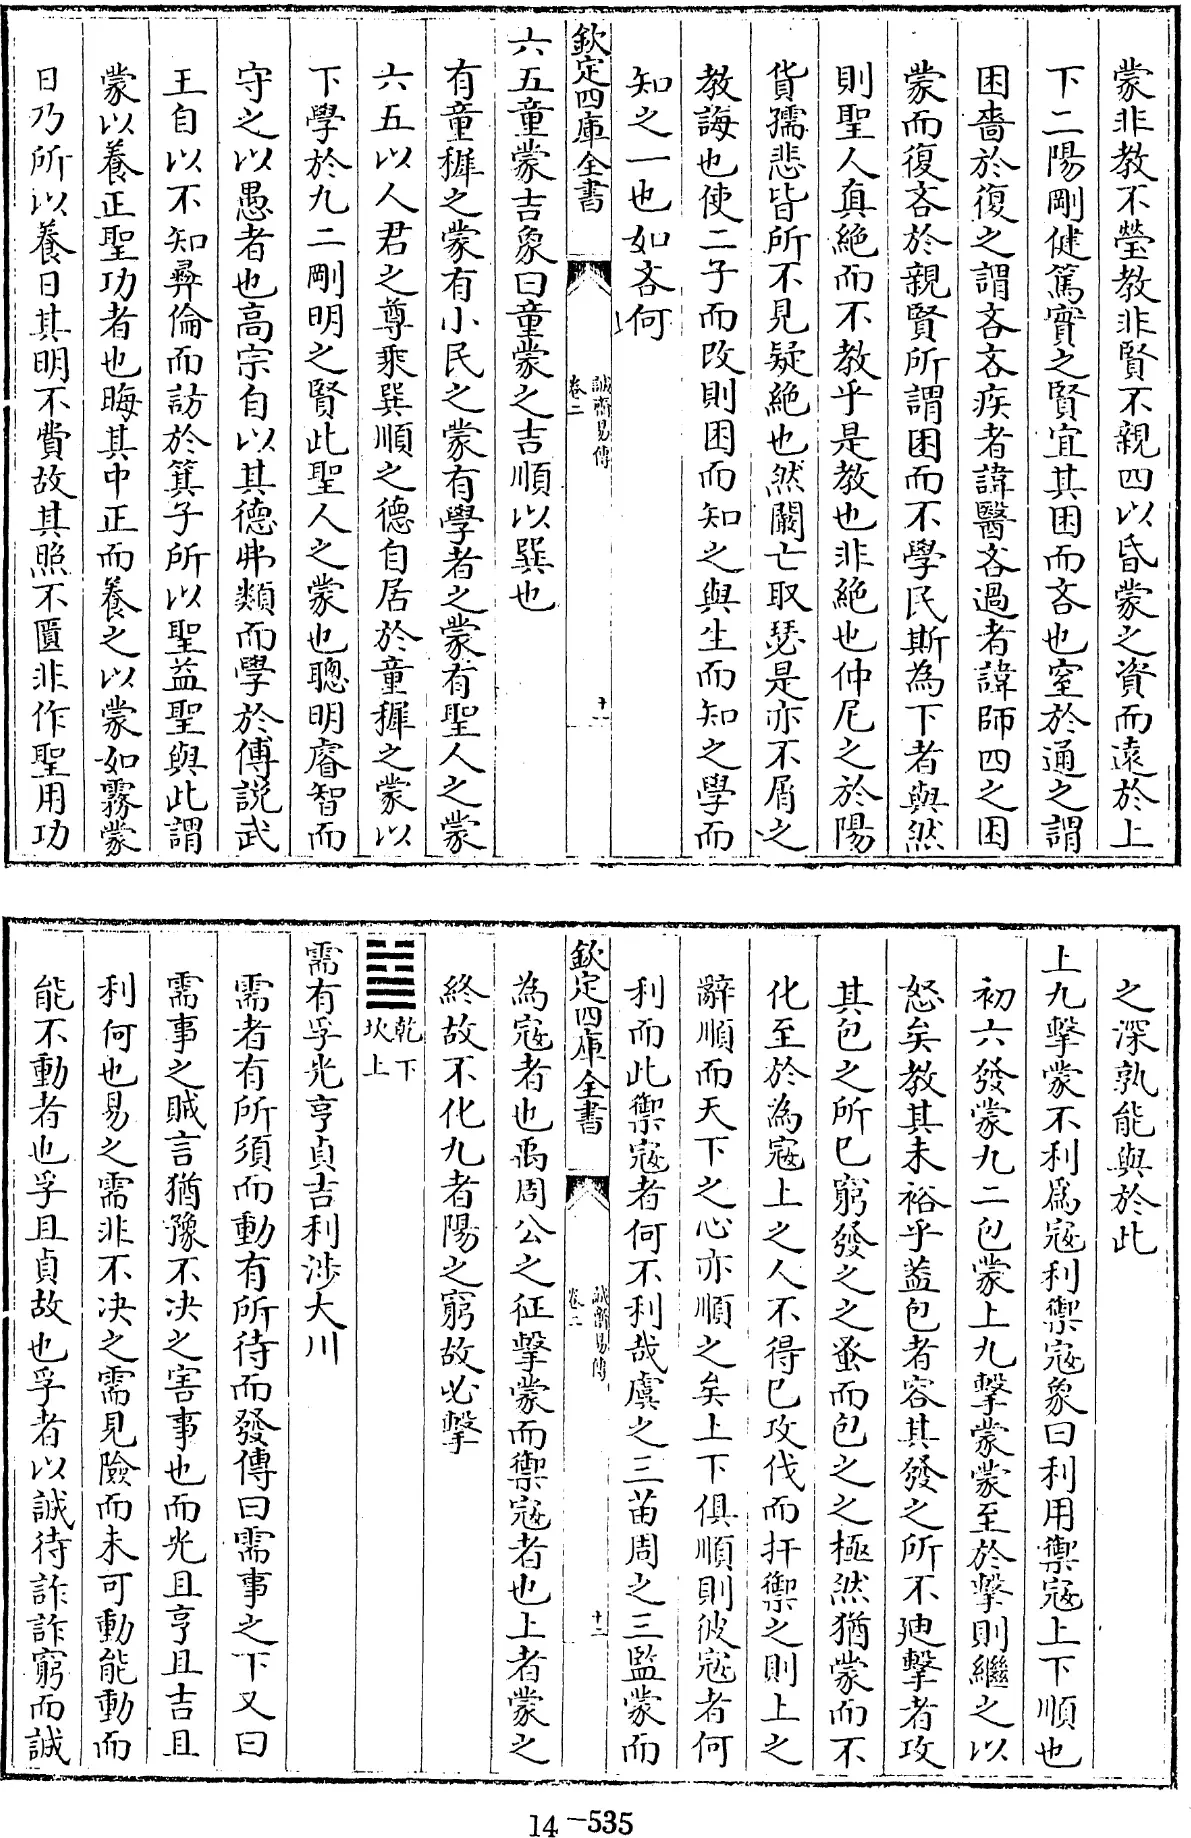 蒙非教不瑩教非賢不親四以昏蒙之資而遠於上
下二陽剛健篤實之賢宜其困而吝也窒於通之謂
困嗇於復之謂吝吝疾者諱醫吝過者諱師四之困
蒙而復吝於親賢所謂困而不學民斯為下者與然
則聖人真絶而不教乎是教也非絶也仲尼之於陽
貨孺悲皆所不見疑絶也然闞亡取瑟是亦不屑之
教誨也使二子而改則困而知之與生而知之學而
知之一也如吝何
欽定四庫全書
誠齋易傳
卷二
十一
六五童蒙吉象曰童蒙之吉順以巽也
有童穉之蒙有小民之蒙有學者之蒙有聖人之蒙
六五以人君之尊乘巽順之德自居於童穉之蒙以
下學於九二剛明之賢此聖人之蒙也聰明睿智而
守之以愚者也高宗自以其德弗類而學於傅説武
王自以不知彛倫而訪於箕子所以聖益聖與此謂
蒙以養正聖功者也晦其中正而養之以蒙如霧蒙
日乃所以養日其明不費故其照不匱非作聖用功
之深孰能與於此
上九擊蒙不利為寇利禦寇象曰利用禦寇上下順也
初六發蒙九二包蒙上九擊蒙蒙至於擊則繼之以
怒矣教其未裕乎葢包者容其發之所不廸擊者攻
其包之所已窮發之之蚤而包之之極然猶蒙而不
化至於為寇上之人不得已攻伐而扞禦之則上之
辭順而天下之心亦順之矣上下俱順則彼寇者何
利而此禦寇者何不利哉虞之三苗周之三監蒙而
欽定四庫全書
誠齋易傳
卷二
十二
為寇者也禹周公之征擊蒙而禦寇者也上者蒙之
終故不化九者陽之窮故必擊
乾下
坎上
需有孚光亨貞吉利涉大川
需者有所須而動有所待而發傳曰需事之下又曰
需事之賊言猶豫不决之害事也而光且亨且吉且
利何也易之需非不决之需見險而未可動能動而
能不動者也孚且貞故也孚者以誠待詐詐窮而誠
14-535